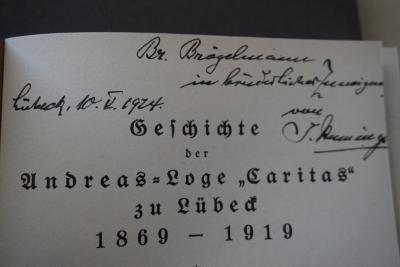 Br. Brögelmann
in brüderlicher Zuneigung
Lübeck, 10. V. 1924.
von
Geschichte
der
Andreas=Loge „Caritas“
zu Lübeck
1869 – 1919